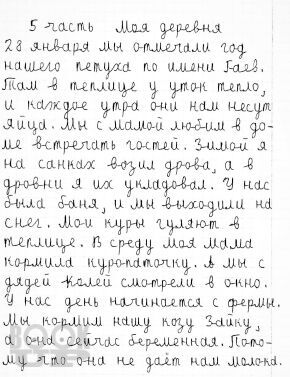 5 часть Моя деревня
28 января мы отмечали год
нашего петуха по имени Гаев.
Там в теплице у уток тепло,
и каждое утра они нам несут
яйца. Мы с мамой любим в до-
ме встречать гостей. Зимой я
на санках возил дрова, а в
дровни я их укладовал. У нас
была баня, и мы выходили на
снег. Мои куры гуляют в
теплице. В среду моя мама
кормила куропаточку. А мы с
дядей Колей смотрели в окно.
У нас день начинается с фермы.
Мы кормим нашу козу Зайку,
а она сейчас беременная. Пото-
му что она не даёт нам молока.